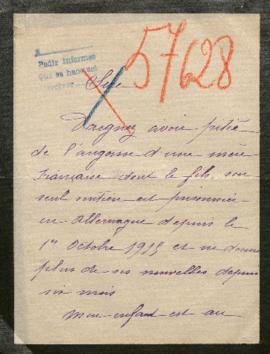 Pedir informes
57628
Sire
Daignez avoir pitié
de l'angoisse d'une mère
Française dont le fils, son
seul soutien est prisonnier
en Allemagne depuis le
1er Octobre 1915 et ne donne
plus de ses nouvelles depuis
six mois
Mon enfant est au